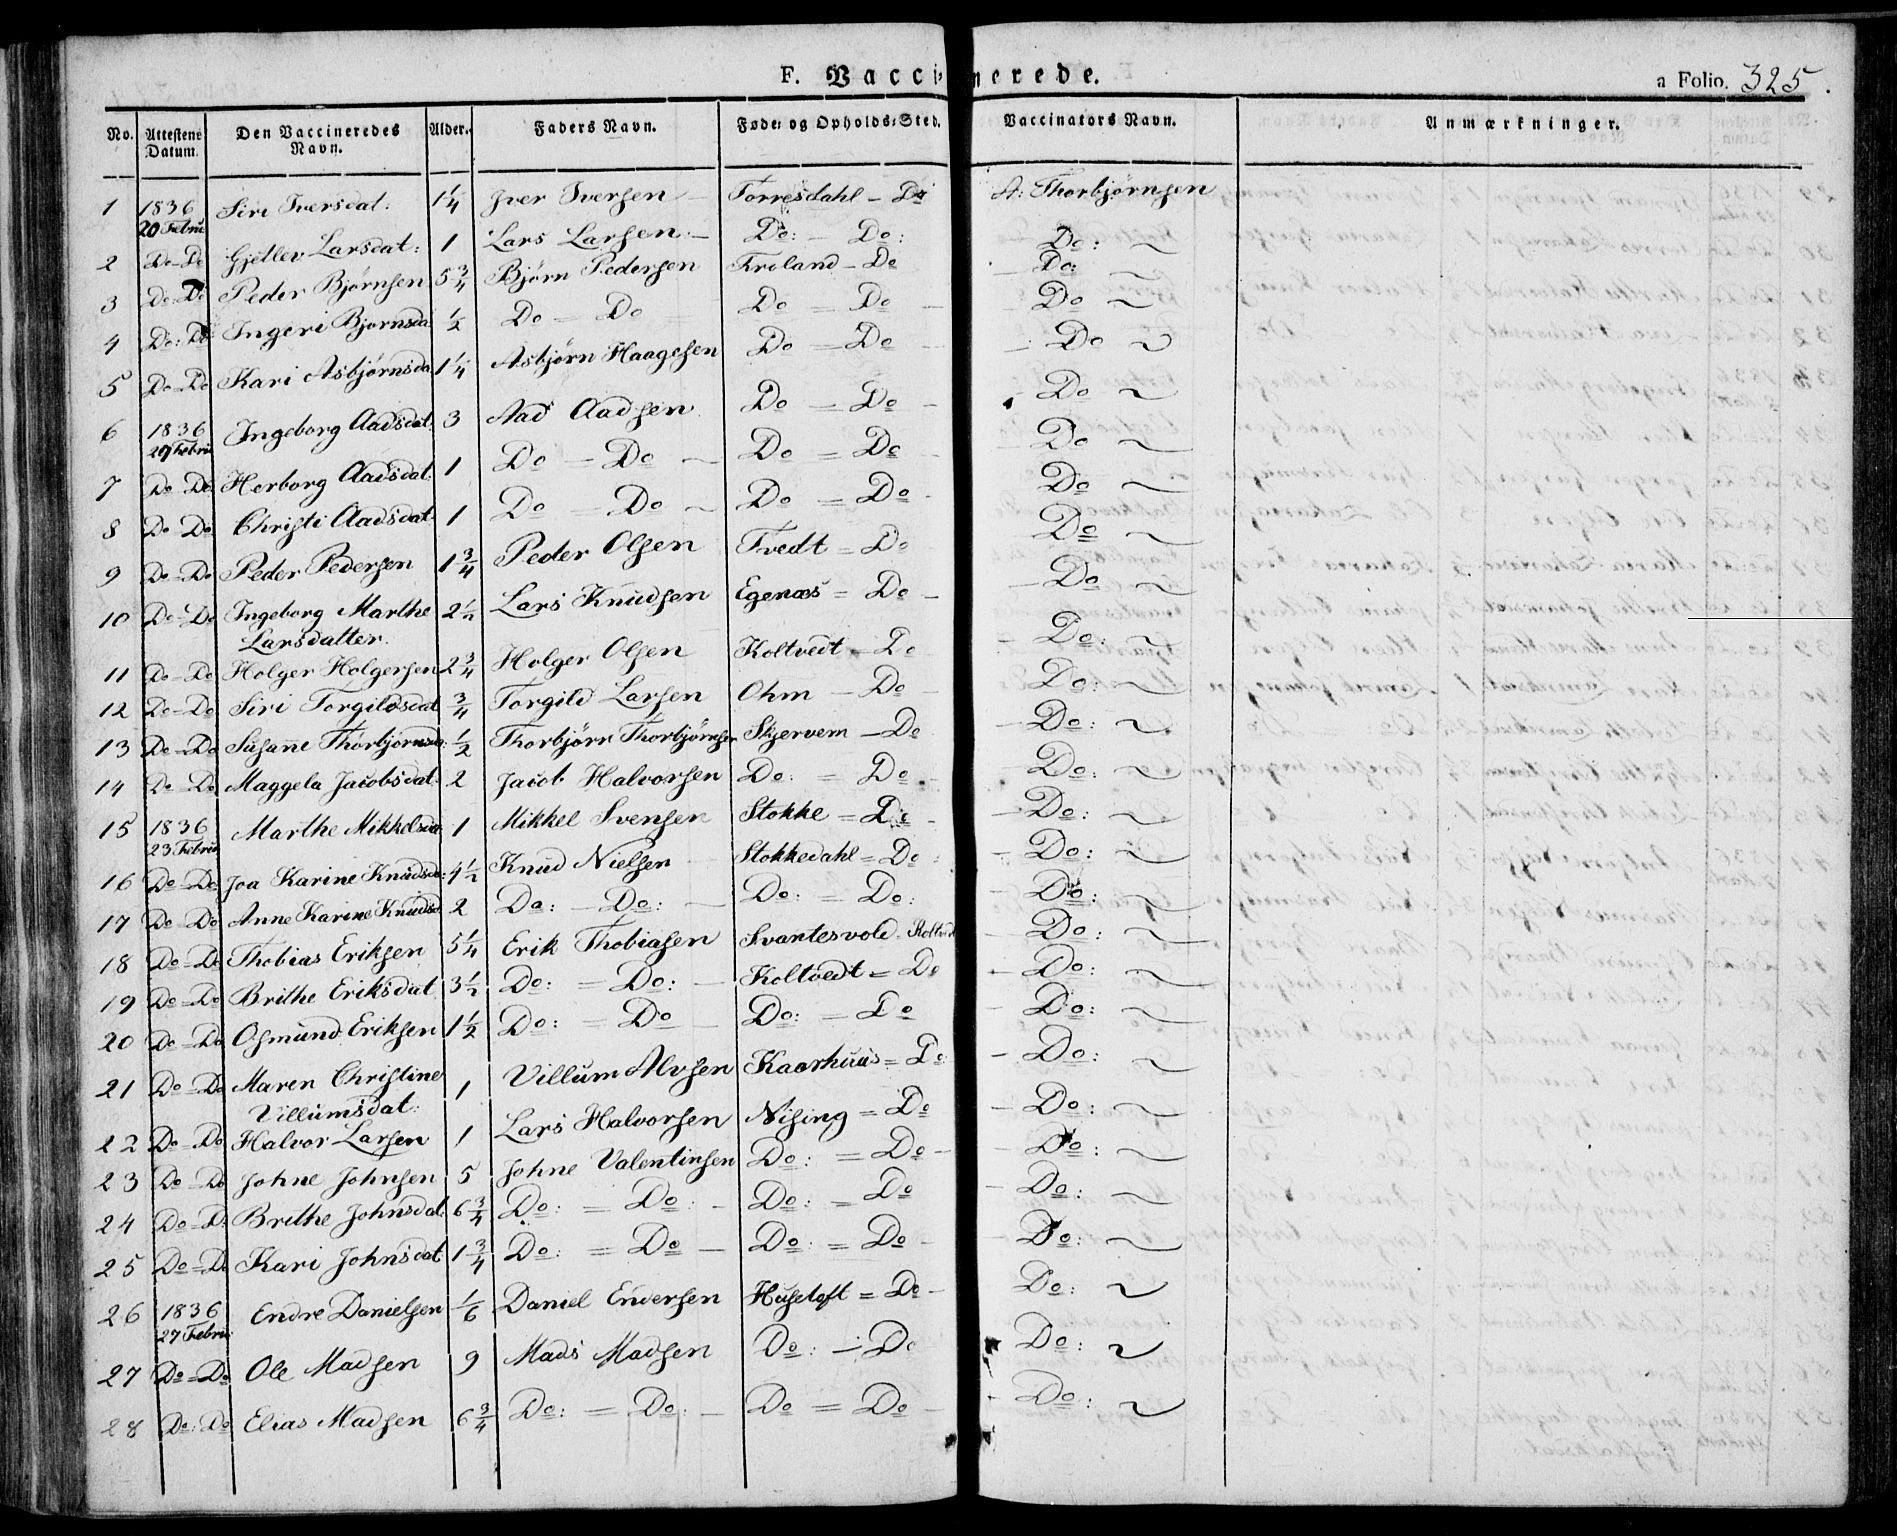 F. Vaccinerede.
a Folio. 325.
No. Attestens Datum. Den Vaccineredes Navn. Alder. Faders Navn. Føde- og Opholds-Sted. Vaccinators Navn. Anmærkninger.
1 1836 20 Febru Siri Iversdat: 1 1/4 Iver Iversen – Torresdahl – Do A: Thorbjørnsen
2 Do – Do Gjetlev Larsdat: 1 Lars Larsen – Do: – Do: Do: ~
3 Do – Do Peder Bjørnsen 5 3/4 Bjørn Pedersen Froland – Do – Do: ~
4 Do: Do Ingeri Bjørnsda 1/2 Do = Do Do = Do – Do ~
5 Do – Do Kari Asbjørnsda 1 1/4 Asbjørn Haagesen Do = Do – Do ~
6 1836 29 Febru Ingeborg Aadsdat. 3 Aad Aadsen Do = Do – Do ~
7 Do – Do Herborg Aadsdat. 1 Do = Do ~ Do = Do – Do ~
8 Do – Do Christi Aadsdat 1 Do = Do ~ Do = Do – Do ~
9 Do – Do Peder Pedersen 1 3/4 Peder Olsen Tvedt = Do Do ~
10 Do – Do Ingeborg Marthe 2 1/2 Lars Knudsen Egenæs = Do – – Do ~
Larsdatter.
11 Do – Do Holger Holgersen 2 3/4 Holger Olsen Koltvedt – Do – Do: ~
12 Do – Do Siri Torgildsdat 3/4 Torgild Larsen Ohm – Do – – Do: ~
13 Do – Do Susanne Thorbjørnsda: 1/2 Thorbjørn Thorbjørnsen Skjervem – Do – Do: ~
14 Do – Do Maggela Jacobsdat. 2 Jacob Halvorsen Do: = Do – – Do: ~
15 1836 23 Febru Marthe Mikkelsda 1 Mikkel Svensen Stokke = Do – – Do: ~
16 Do – Do Joa Karine Knudsda: 4 1/2 Knud Nielsen – Stokkedahl = Do: – Do: ~
17 Do – Do Anne Karine Knudsd 2 Do: – Do: – Do: = Do: – Do: ~
18 Do – Do Thobias Eriksen 5 1/4 Erik Thobiasen Svantesvold – Koltved – Do: ~
19 Do – Do Brithe Eriksdat 3 1/2 Do: = Do: – Koltvedt = Do – Do: ~
20 Do – Do Osmund Eriksen 1 1/2 Do: = Do Do: = Do – Do: ~
21 Do – Do Maren Christine 1 Villum Alvsen Kaarhuus = Do – Do: ~
Villumsdat:
22 Do – Do Halvor Larsen 1 Lars Halvorsen Nising = Do – Do: ~
23 Do – Do Johne Johnsen 5 Johne Valentinsen Do: = Do – – Do: ~
24 Do – D: Brithe Johnsdat. 6 3/4 Do: = Do: – Do: = Do – Do: ~
25 Do = Do Kari Johnsdat 1 3/4 Do: = Do – Do: = Do – Do: ~
26 1836 27 Febru Endre Danielsen 1/6 Daniel Endersen Husetoft = Do – Do: ~
27 Do – Do Ole Madsen 9 Mads Madsen Do: – Do Do: ~
28 Do: Do Elias Madsen 6 3/4 Do: = Do: – Do = Do – – Do: ~